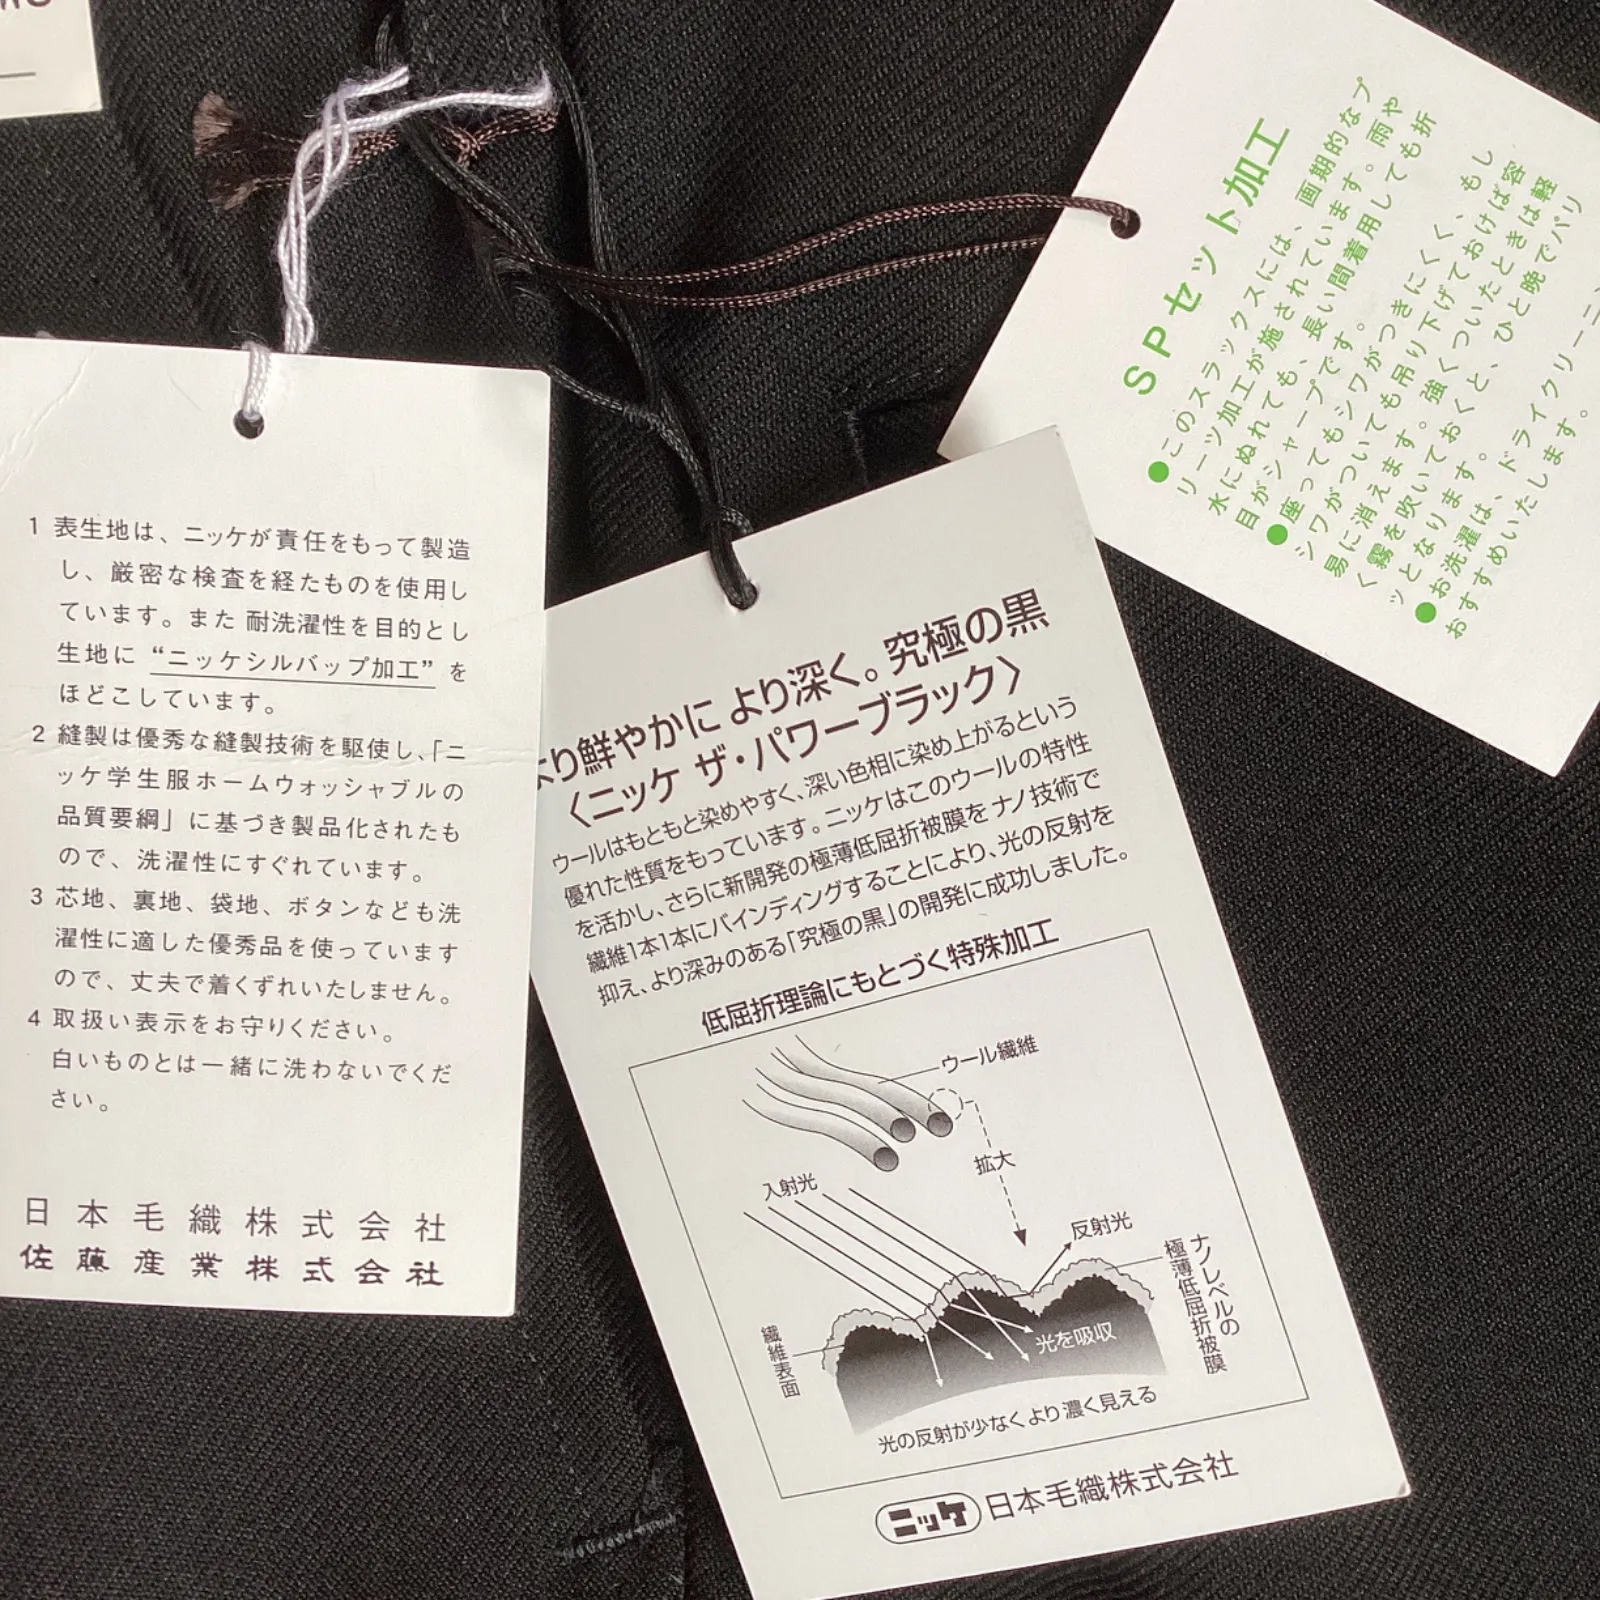 1 表生地は、ニッケが責任をもって製造
し、厳密な検査を経たものを使用し
ています。また 耐洗濯性を目的とし
生地に “ニッケシルバップ加工” を
ほどこしています。
2 縫製は優秀な縫製技術を駆使し、「ニ
ッケ学生服ホームウォッシャブルの
品質要綱」に基づき製品化されたも
ので、洗濯性にすぐれています。
3 芯地、裏地、袋地、ボタンなども洗
濯性に適した優秀品を使っています
ので、丈夫で着くずれいたしません。
4 取扱い表示をお守りください。
白いものとは一緒に洗わないでくだ
さい。
日本毛織株式会社
佐藤産業株式会社
より鮮やかに より深く。究極の黒
〈ニッケ ザ・パワーブラック〉
ウールはもともと染めやすく、深い色相に染め上がるという
優れた性質をもっています。ニッケはこのウールの特性
を活かし、さらに新開発の極薄低屈折被膜をナノ技術で
繊維1本1本にバインディングすることにより、光の反射を
抑え、より深みのある「究極の黒」の開発に成功しました。
低屈折理論にもとづく特殊加工
ウール繊維
拡大
入射光
反射光
ナノレベルの
極薄低屈折被膜
繊維表面
光を吸収
光の反射が少なくより濃く見える
ニッケ 日本毛織株式会社
SPセット加工
●このスラックスには、画期的なプ
リーツ加工が施されています。雨や
水にぬれても、長い間着用しても折
目がシャープです。
●座ってもシワがつきにくく、もし
シワがついても吊り下げておけば容
易に消えます。強くついたときは軽
く霧を吹いておくと、ひと晩でパリ
ッとなります。
●お洗濯は、ドライクリーニン
おすすめいたします。